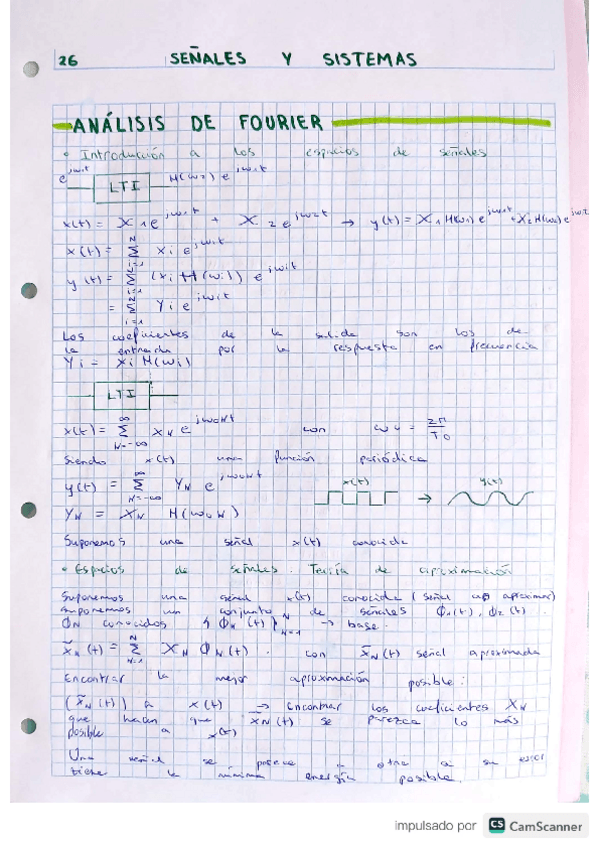 26 SEÑALES Y SISTEMAS
ANÁLISIS DE FOURIER
• Introducción a los espacios de señales
e^{jw1t} LTI H(w2) e^{jw1t}
x(t) = X1 e^{jw1t} + X2 e^{jw2t} → y(t) = X1 H(w1) e^{jw1t} + X2 H(w2) e^{jw2t}
x(t) = Σ_{i=1}^{N} Xi e^{jwit}
y(t) = Σ_{i=1}^{N} (Xi H(wi)) e^{jwit}
= Σ_{i=1}^{N} Yi e^{jwit}
Los coeficientes de la salida son los de
la entrada por la respuesta en frecuencia
Yi = Xi H(wi)
LTI
x(t) = Σ_{N=-∞}^{∞} XN e^{jw0Nt} con = 2π/T0
Siendo x(t) una función periódica
x(t) y(t)
y(t) = Σ_{N=-∞}^{∞} YN e^{jw0Nt} →
YN = XN H(w0N)
Suponemos una señal x(t) conocida
• Espacios de señales. Teoría de aproximación
Suponemos una señal x(t) conocida (señal a aproximar)
suponemos un conjunto de señales ϕ1(t), ϕ2(t).
ϕN conocidos {ϕN(t)}_{N=1}^{N} → base.
x̃N(t) = Σ_{N=1}^{N} XN ϕN(t). con x̃N(t) señal aproximada
Encontrar la mejor aproximación posible:
(x̃N(t)) a x(t) → Encontrar los coeficientes XN
que hacen que x̃N(t) se parezca lo más
posible a x(t)
Una señal se parece a otra si su error
tiene la mínima energía posible.
impulsado por CS CamScanner